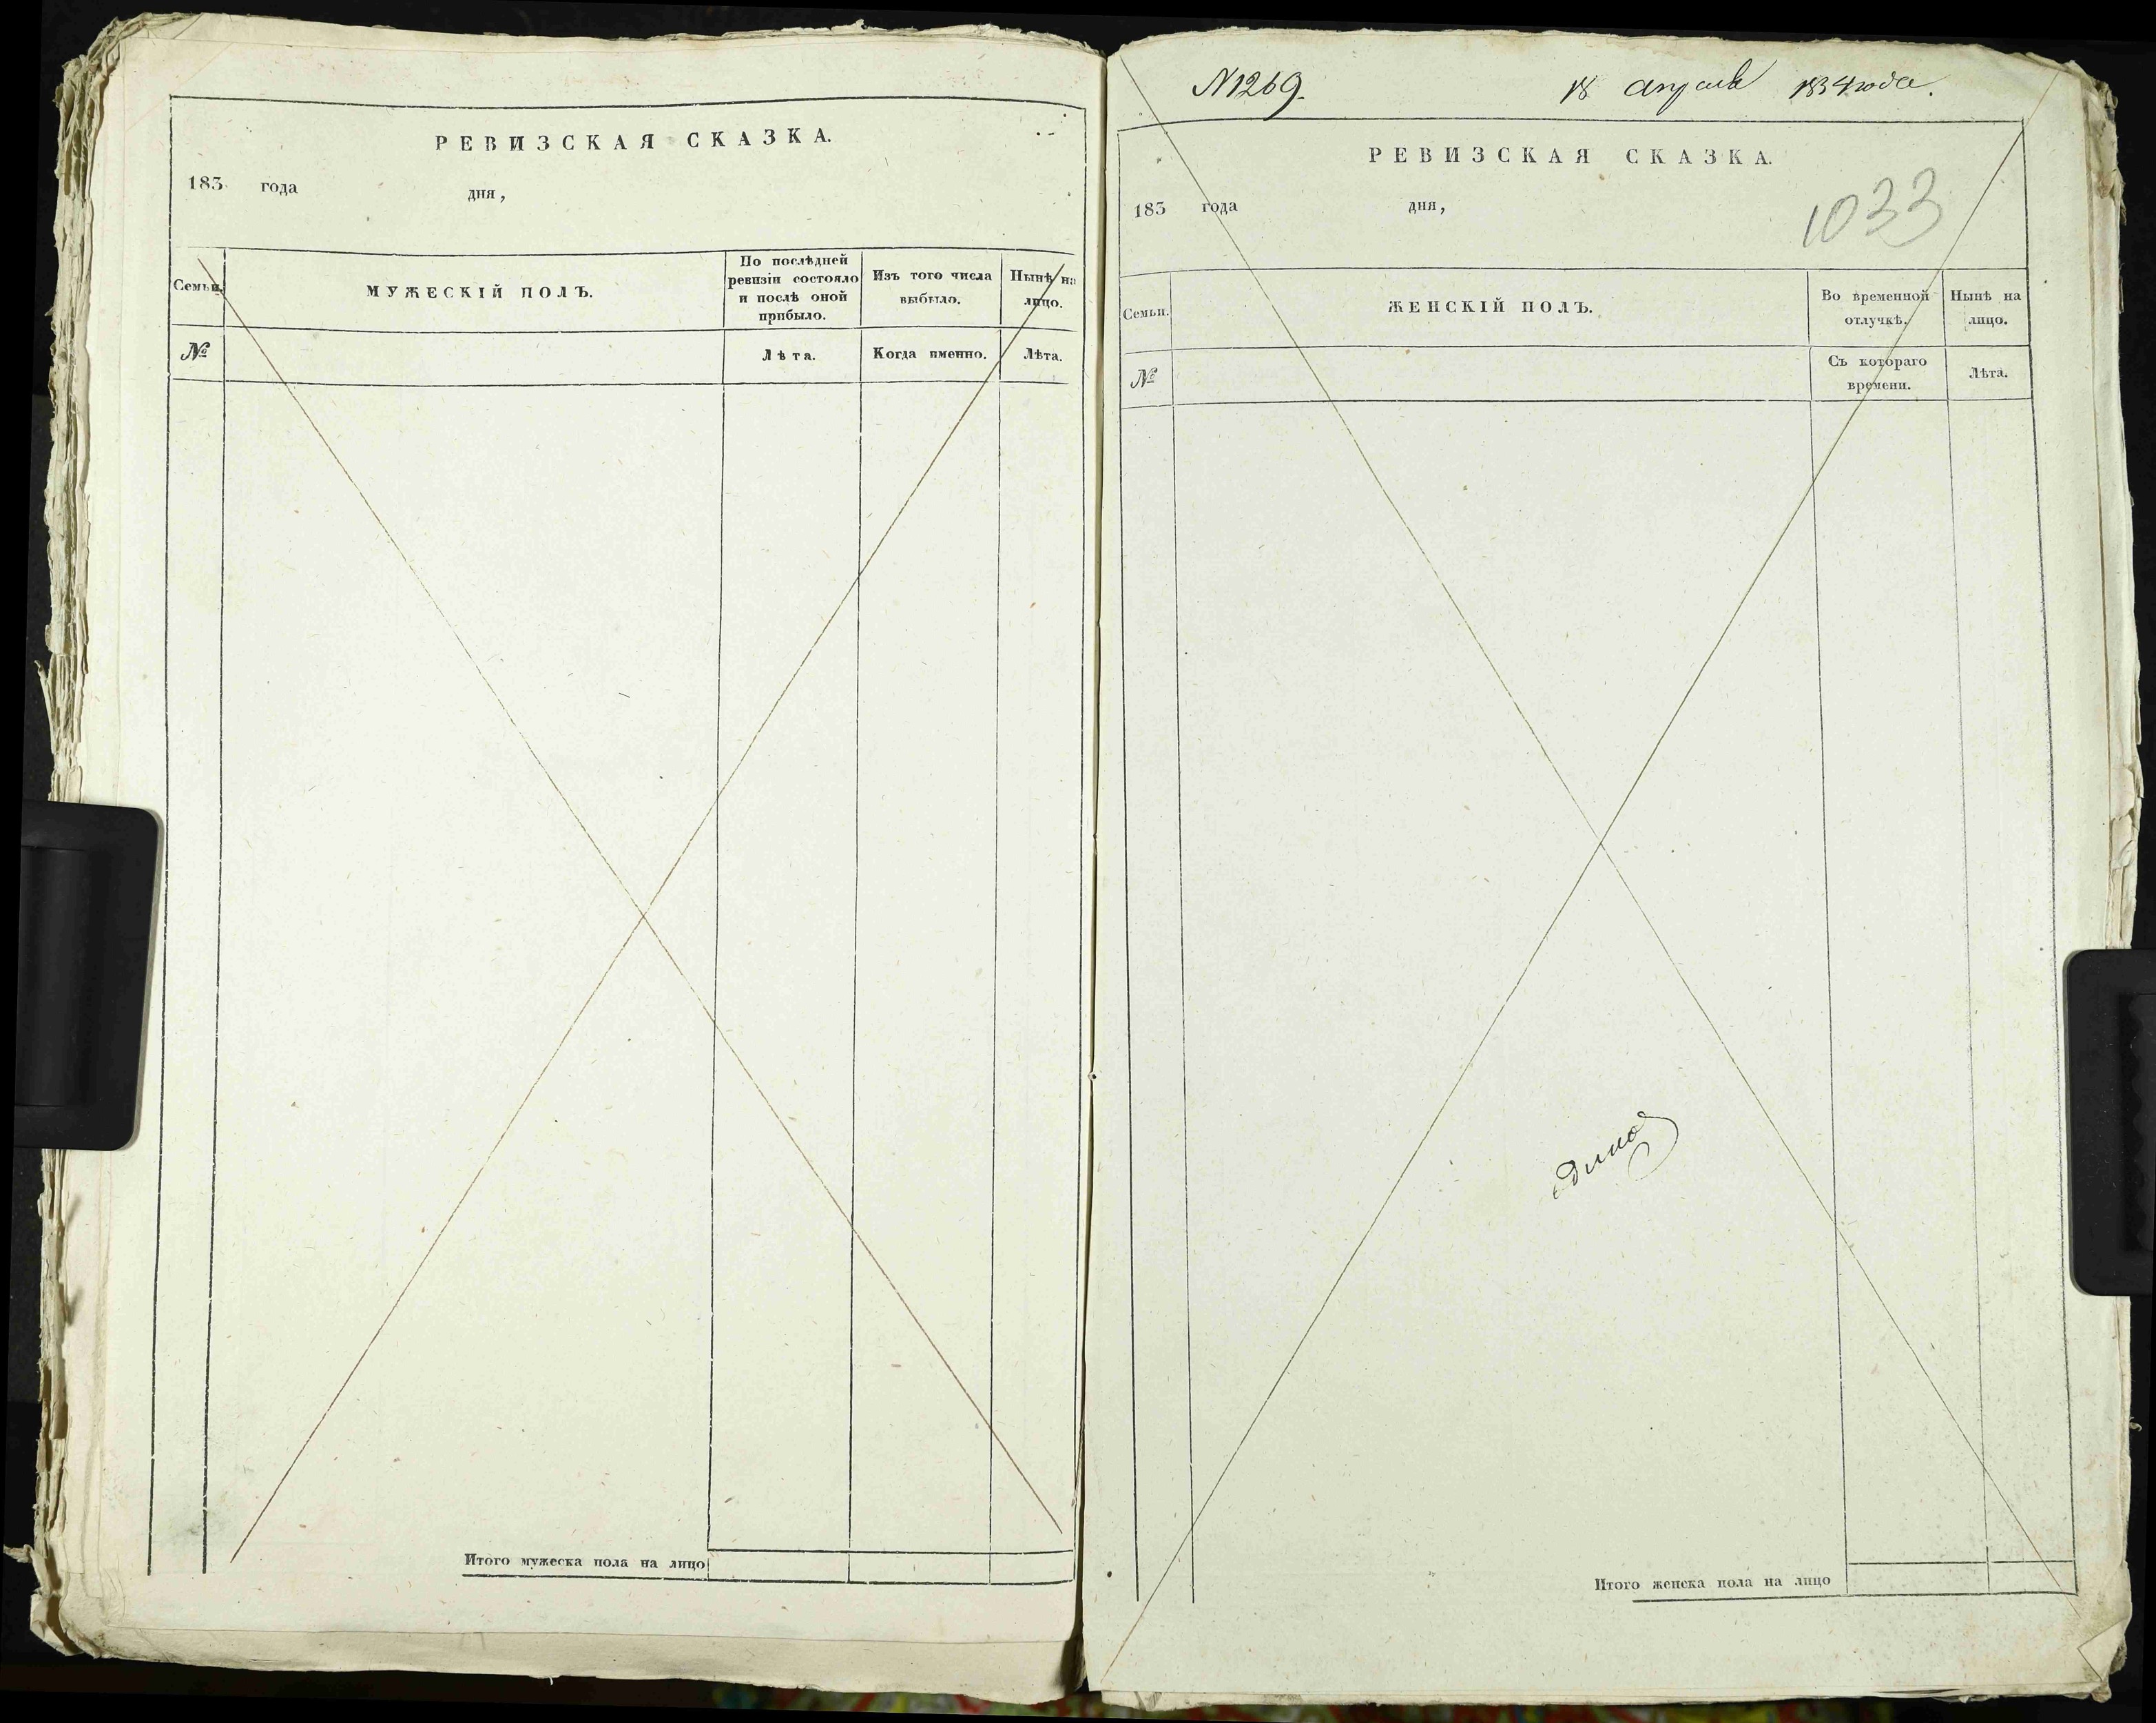 РЕВИЗСКАЯ СКАЗКА.
183 года дня,
Семьи.
МУЖЕСКІЙ ПОЛЪ.
По послѣдней ревизіи состояло и послѣ оной прибыло.
Изъ того числа выбыло.
Нынѣ на лицо.
№
Лѣта.
Когда именно.
Лѣта.
Итого мужеска пола на лицо
N1269. 18 апреля 1834 года.
РЕВИЗСКАЯ СКАЗКА.
1033
183 года дня,
Семьи.
ЖЕНСКІЙ ПОЛЪ.
Во временной отлучкѣ.
Нынѣ на лицо.
№
Съ котораго времени.
Лѣта.
Итого женска пола на лицо